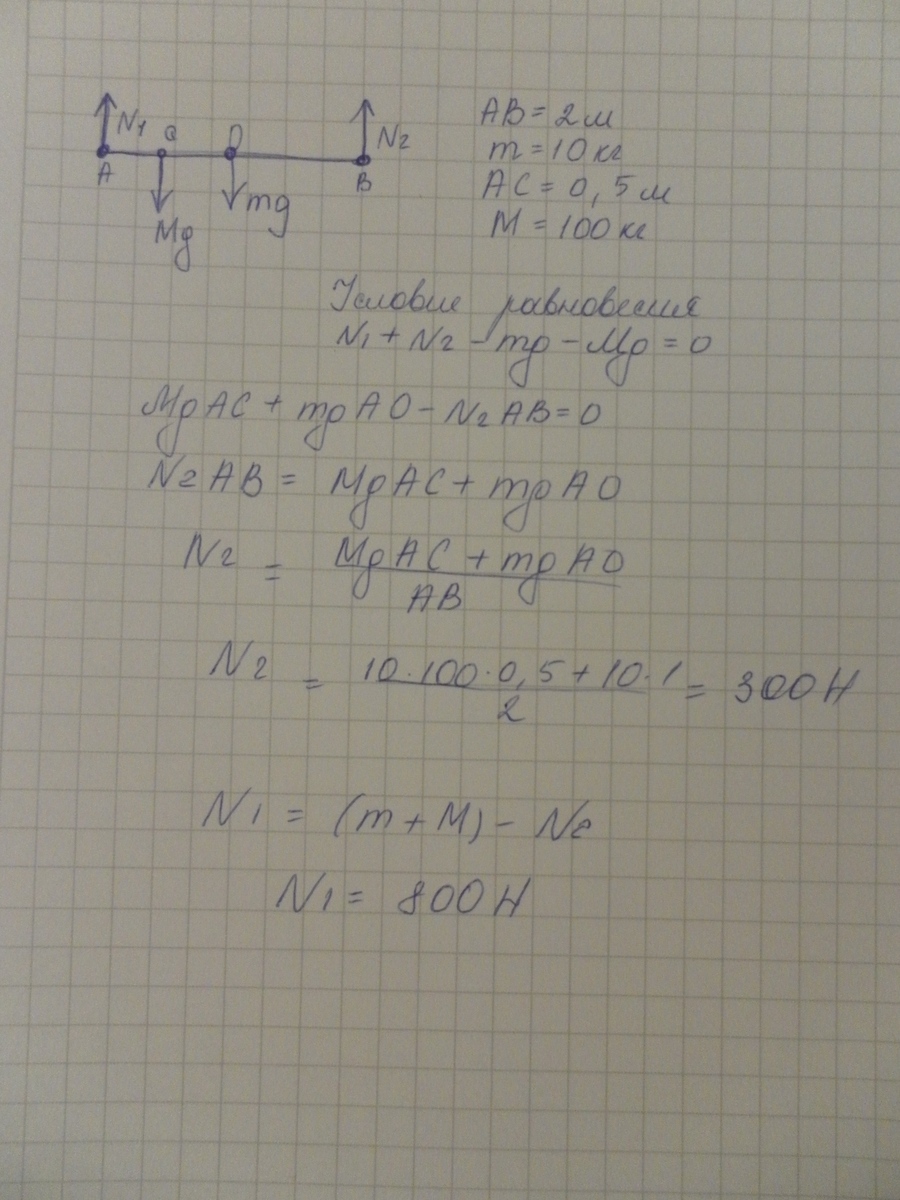 N1 C O N2
A B
Mg mg
AB = 2 м
m = 10 кг
AC = 0,5 м
M = 100 кг
Условие равновесия
N1 + N2 - mg - Mg = 0
MgAC + mgAO - N2AB = 0
N2AB = MgAC + mgAO
N2 = MgAC + mgAO
AB
N2 = 10·100·0,5 + 10·1 = 300 Н
2
N1 = (m + M) - N2
N1 = 800 Н